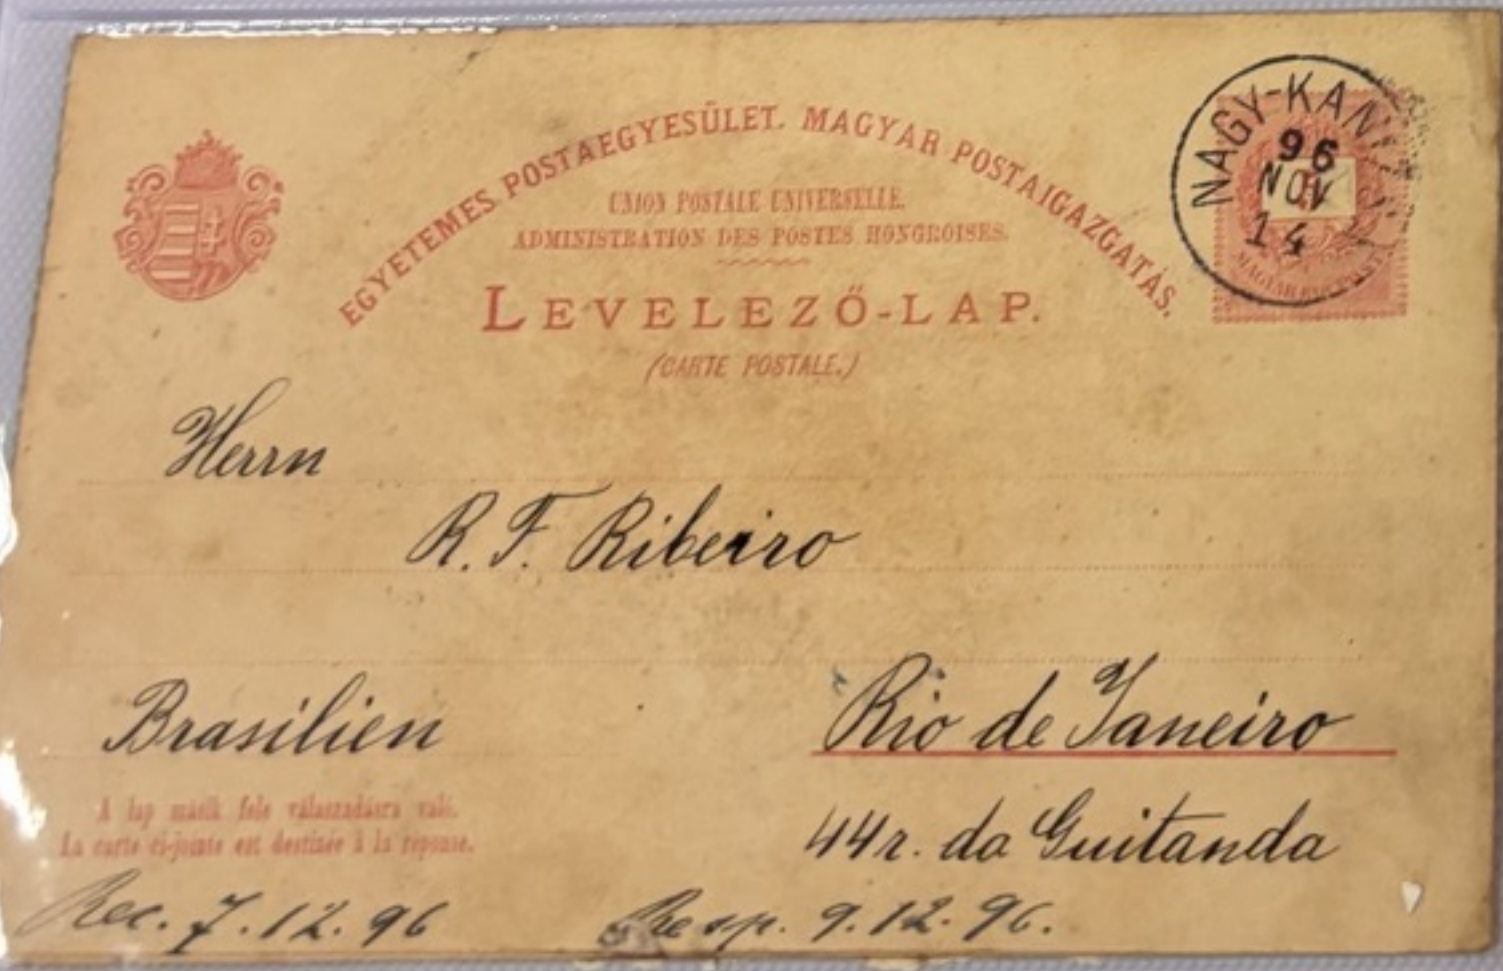 EGYETEMES POSTAEGYESÜLET. MAGYAR POSTAIGAZGATÁS.
UNION POSTALE UNIVERSELLE.
ADMINISTRATION DES POSTES HONGROISES.
LEVELEZŐ-LAP.
(CARTE POSTALE.)
NAGY-KANI
96
NOV
14
MAGYAR
Herrn
R. F. Ribeiro
Brasilien
Rio de Janeiro
A lap másik fele válaszadásra való.
La carte ci-jointe est destinée à la réponse.
44 r. da Guitanda
Rec. 7.12.96
Resp. 9.12.96.